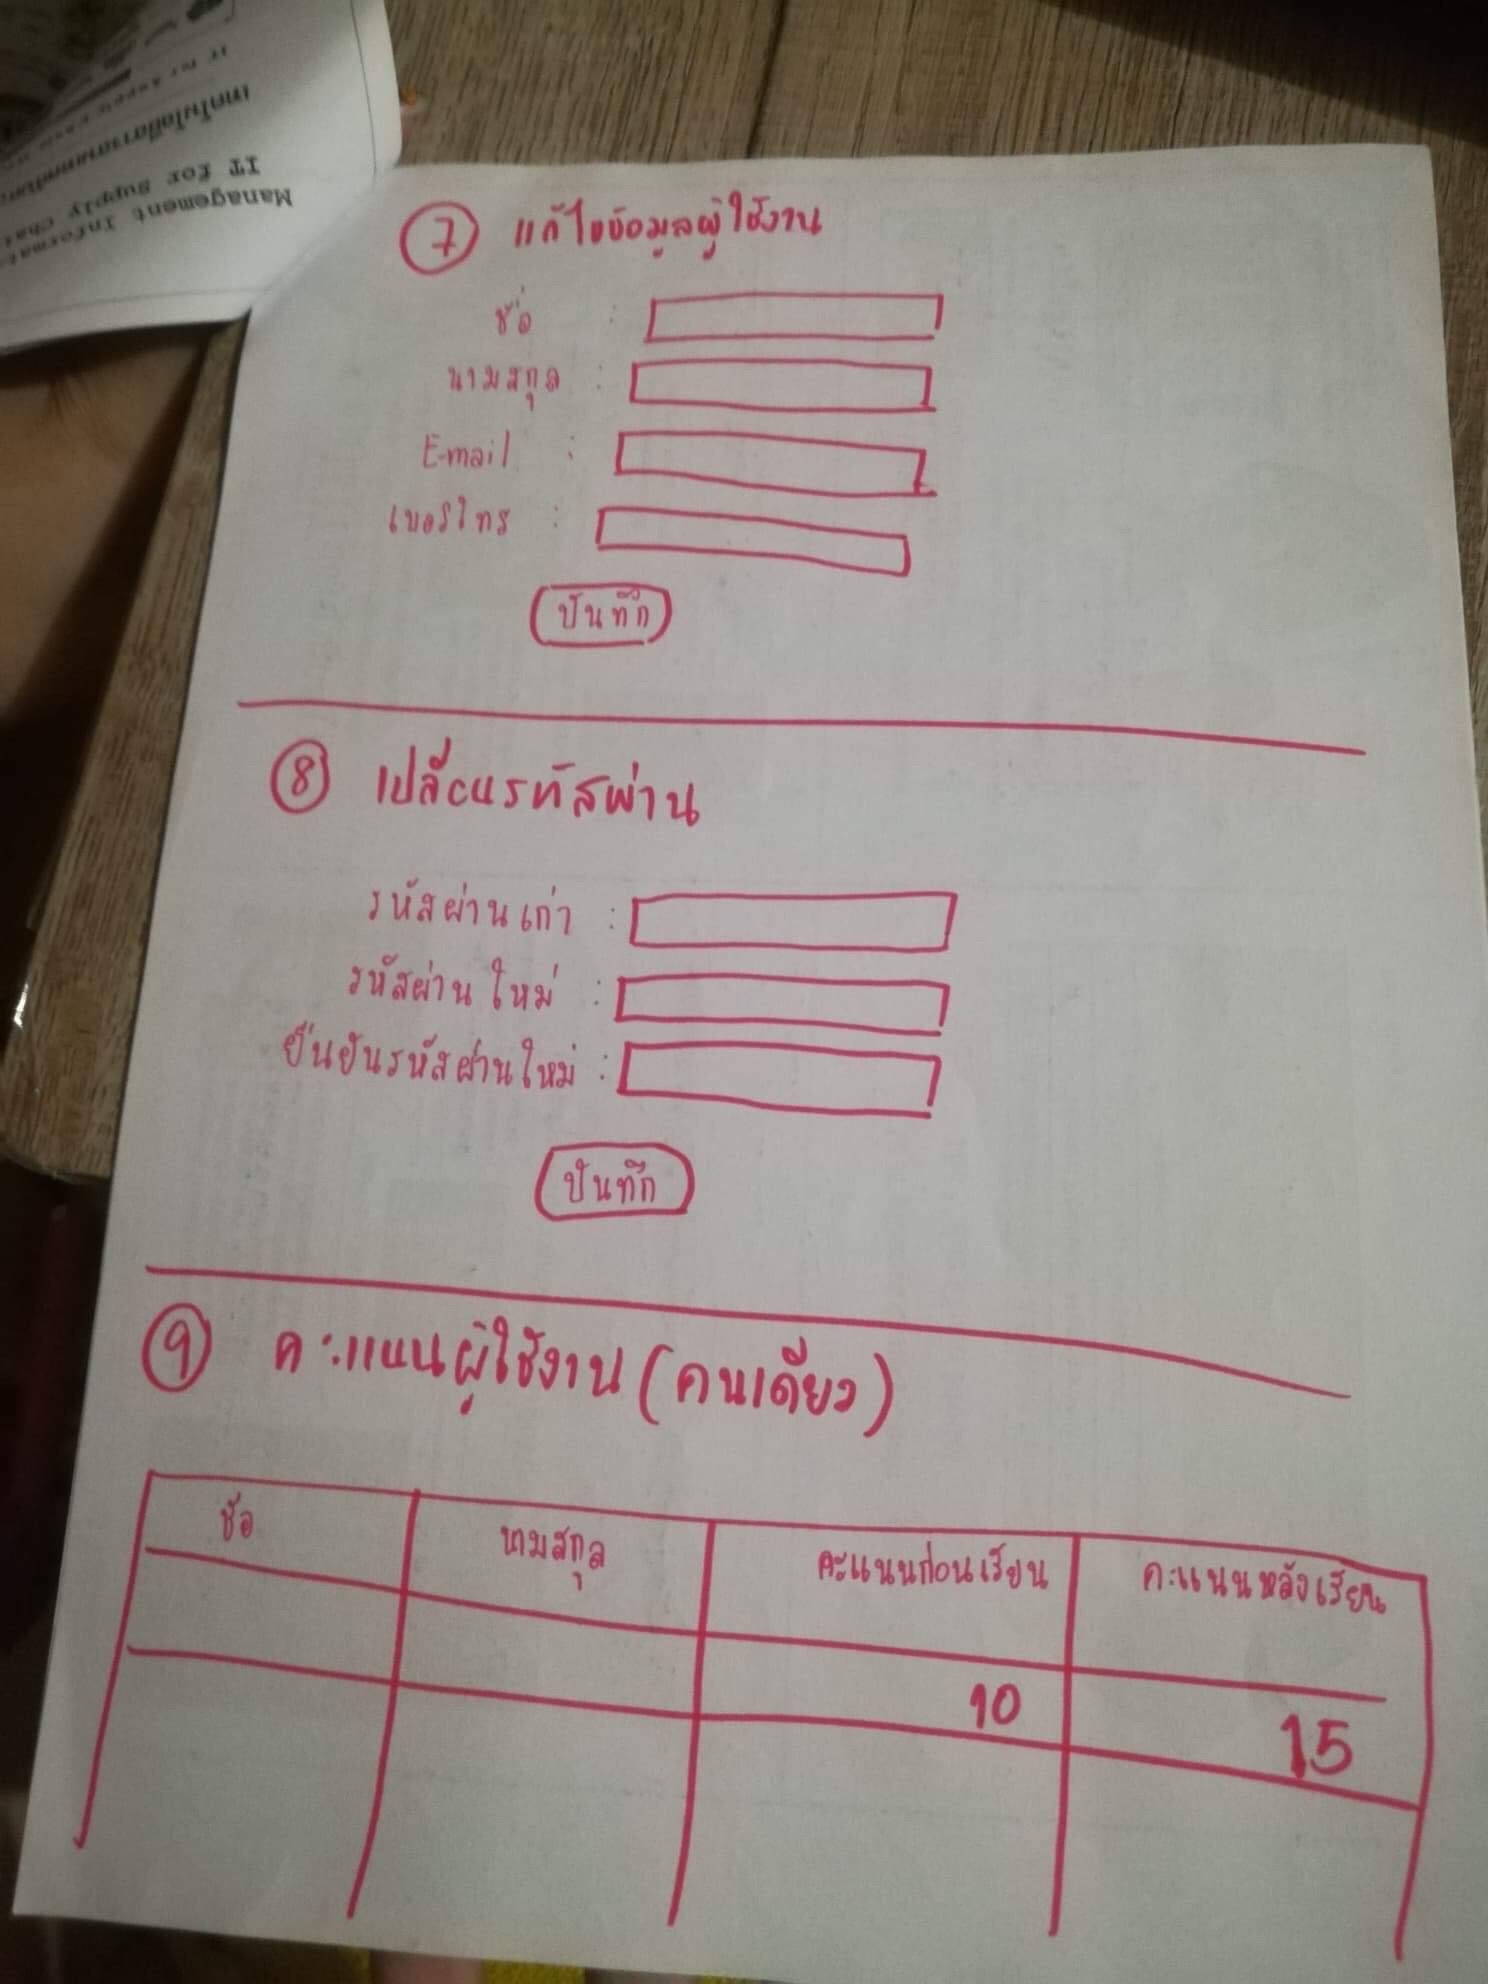 Management Informat
IT for Supply Chai
⑦ แก้ไขข้อมูลผู้ใช้งาน
ชื่อ :
นามสกุล :
E-mail :
เบอร์โทร :
บันทึก
⑧ เปลี่ยนรหัสผ่าน
รหัสผ่านเก่า :
รหัสผ่านใหม่ :
ยืนยันรหัสผ่านใหม่ :
บันทึก
⑨ คะแนนผู้ใช้งาน (คนเดียว)
ชื่อ นามสกุล คะแนนก่อนเรียน คะแนนหลังเรียน
10 15